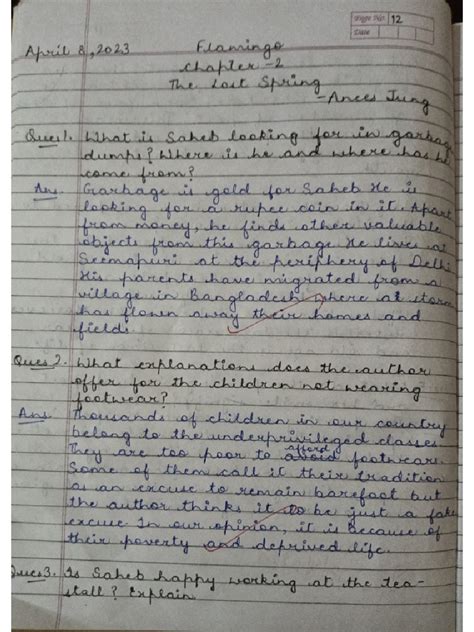 Page No. 12
Date
April 8, 2023 Flamingo
Chapter-2
The Lost Spring
-Anees Jung
Ques1. What is Saheb looking for in garbage
dumps? Where is he and where has he
come from?
Ans. Garbage is gold for Saheb He is
looking for a rupee coin in it. Apart
from money, he finds other valuable
objects from this garbage. He lives at
Seemapuri at the periphery of Delhi
His parents have migrated from a
village in Bangladesh where at storm
has flown away their homes and
fields.
Ques 2. What explanations does the author
offer for the children not wearing
footwear?
Ans. Thousands of children in our country
belong to the underprivileged classes.
They are too poor to avoid afford footwear.
Some of them call it their tradition
as an excuse to remain barefoot but
the author thinks it to be just a fake
excuse In our opinion, it is because of
their poverty and deprived life.
Ques3. Is Saheb happy working at the tea-
stall? Explain